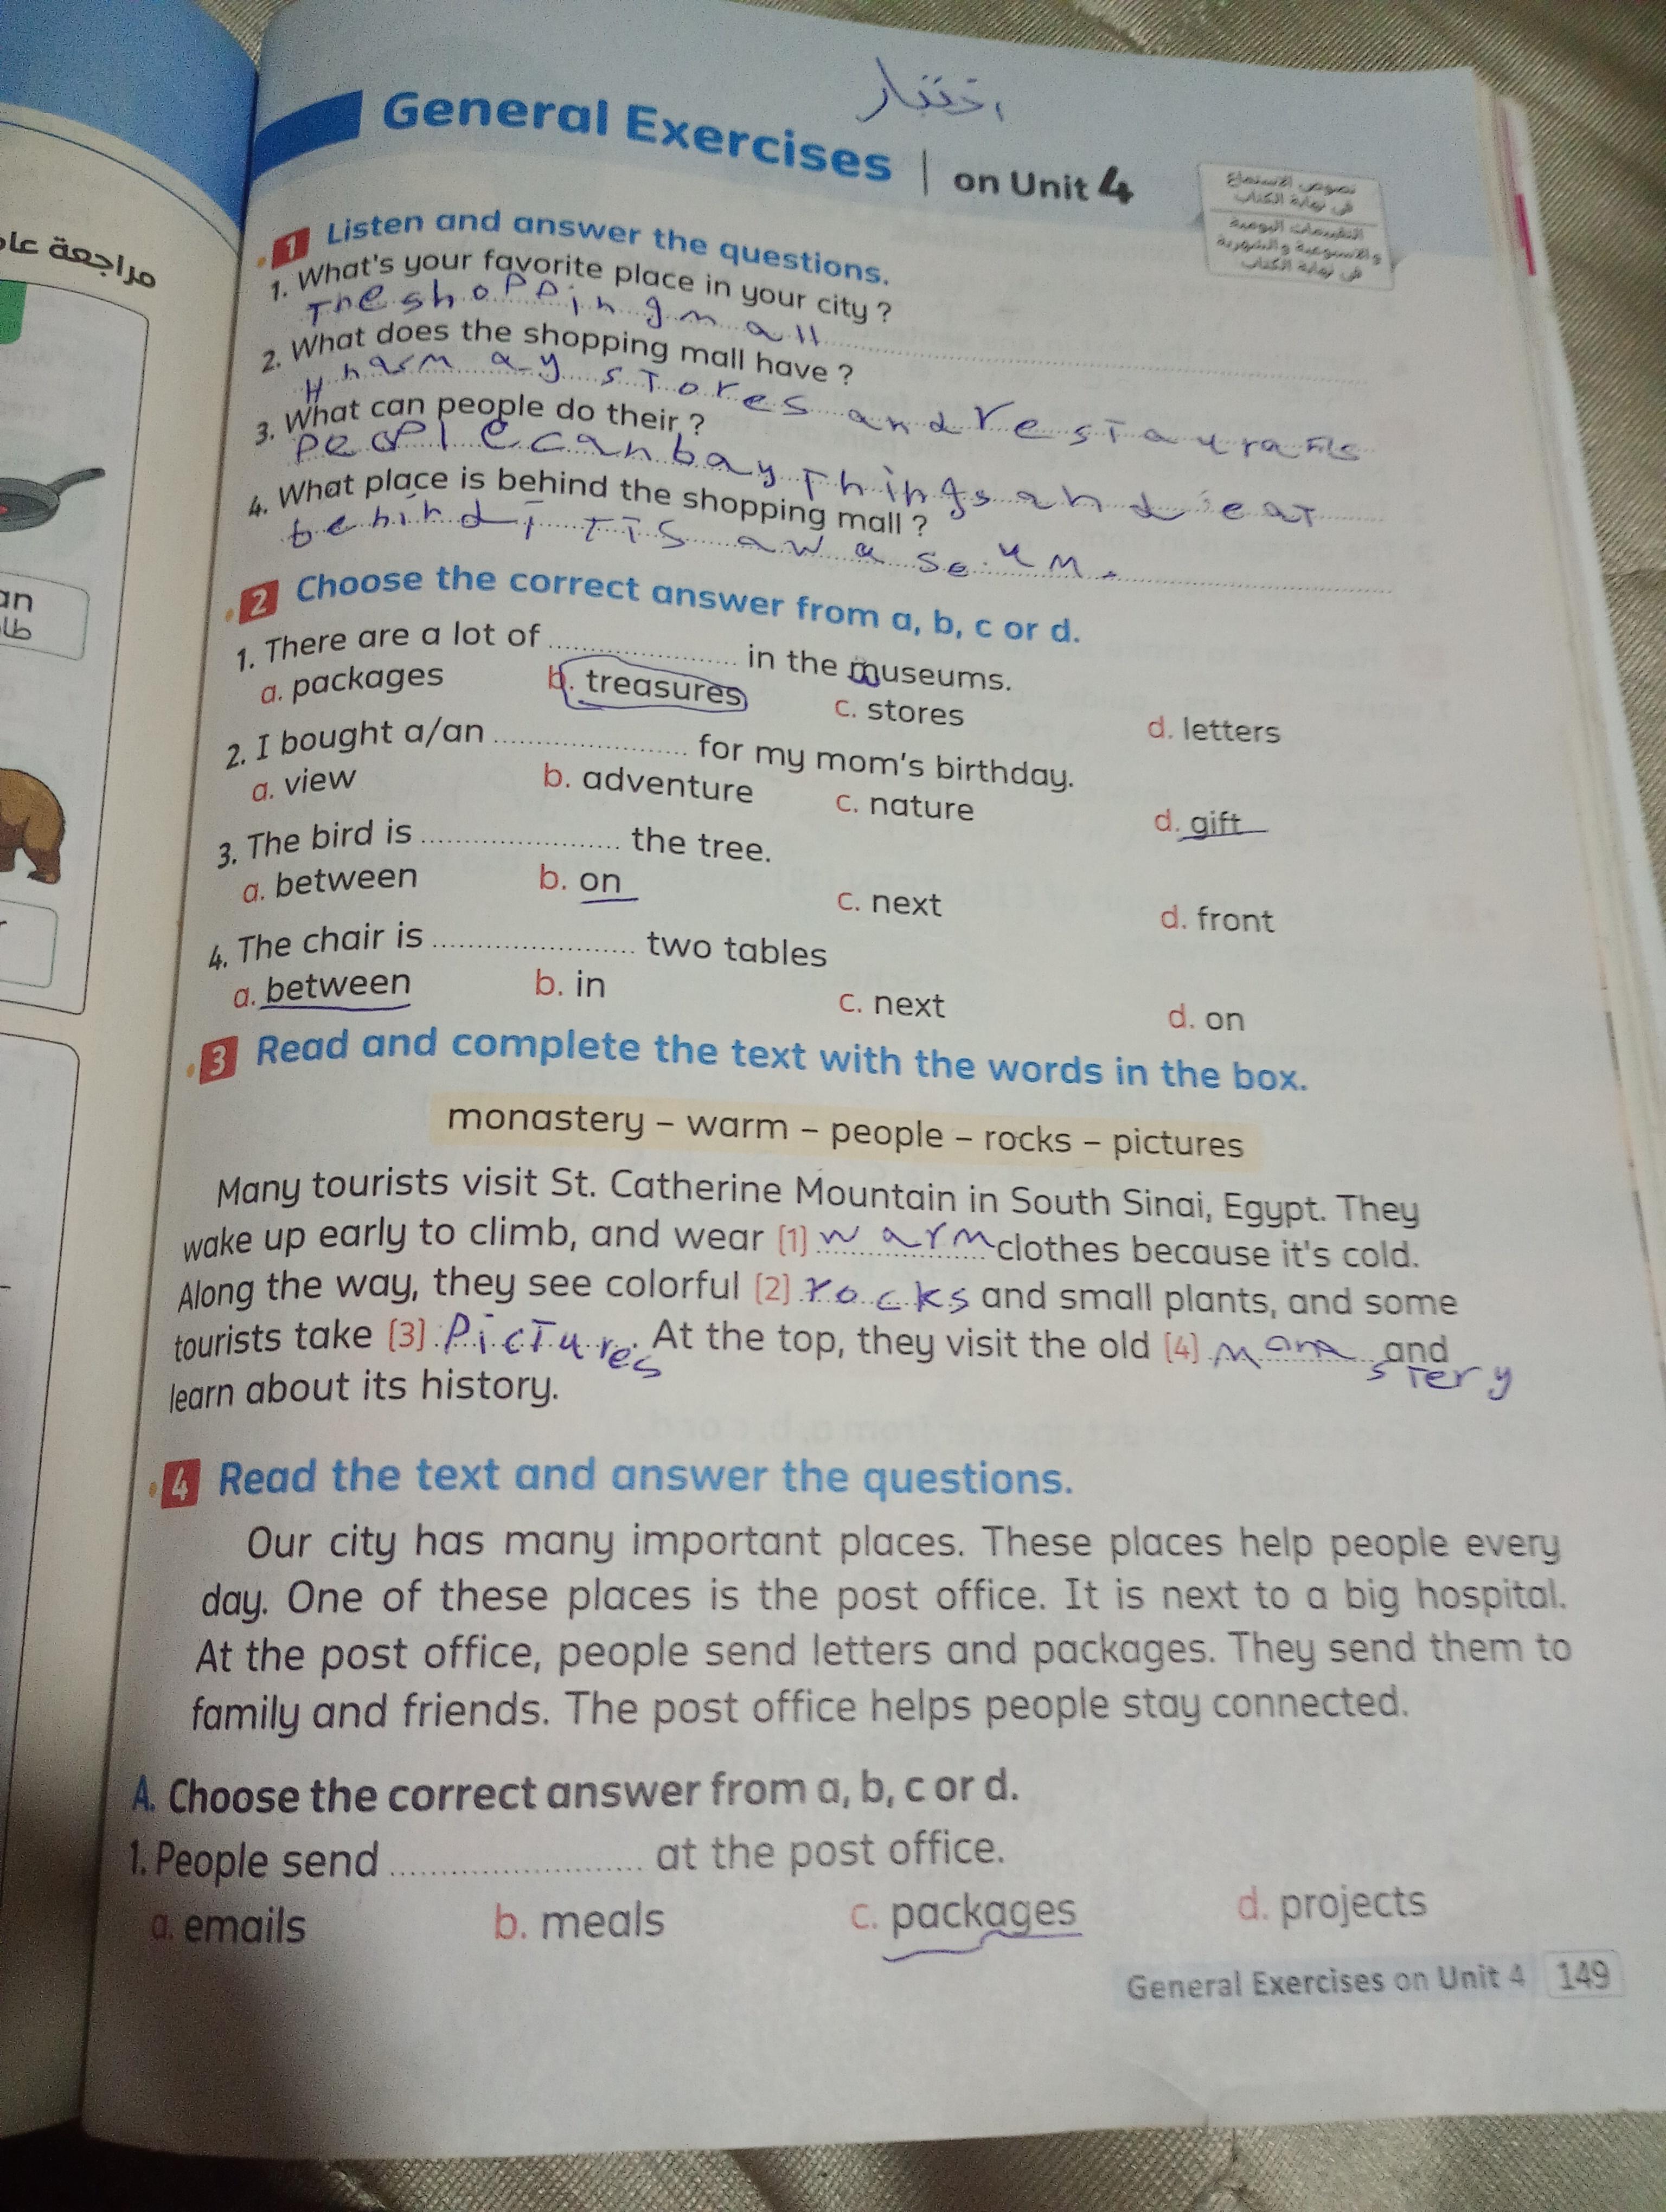 مراجعة عا
an
طا
اختبار
General Exercises | on Unit 4
نصوص الاستماع
فى نهاية الكتاب
التقييمات اليومية
والأسبوعية والشهرية
فى نهاية الكتاب
1 Listen and answer the questions.
1. What's your favorite place in your city ?
The shopping mall
2. What does the shopping mall have ?
stores and
3. What can people do their ?
people can bay Things and eat
4. What place is behind the shopping mall ?
behind iT is a
2 Choose the correct answer from a, b, c or d.
1. There are a lot of .................... in the museums.
a. packages b. treasures c. stores d. letters
2. I bought a/an .................... for my mom's birthday.
a. view b. adventure c. nature d. gift
3. The bird is .................... the tree.
a. between b. on c. next d. front
4. The chair is .................... two tables
a. between b. in c. next d. on
3 Read and complete the text with the words in the box.
monastery – warm – people – rocks – pictures
Many tourists visit St. Catherine Mountain in South Sinai, Egypt. They
wake up early to climb, and wear (1) warm clothes because it's cold.
Along the way, they see colorful (2) rocks and small plants, and some
tourists take (3) Pictures. At the top, they visit the old (4) monastery and
learn about its history.
4 Read the text and answer the questions.
Our city has many important places. These places help people every
day. One of these places is the post office. It is next to a big hospital.
At the post office, people send letters and packages. They send them to
family and friends. The post office helps people stay connected.
A. Choose the correct answer from a, b, c or d.
1. People send .................... at the post office.
a. emails b. meals c. packages d. projects
General Exercises on Unit 4 149